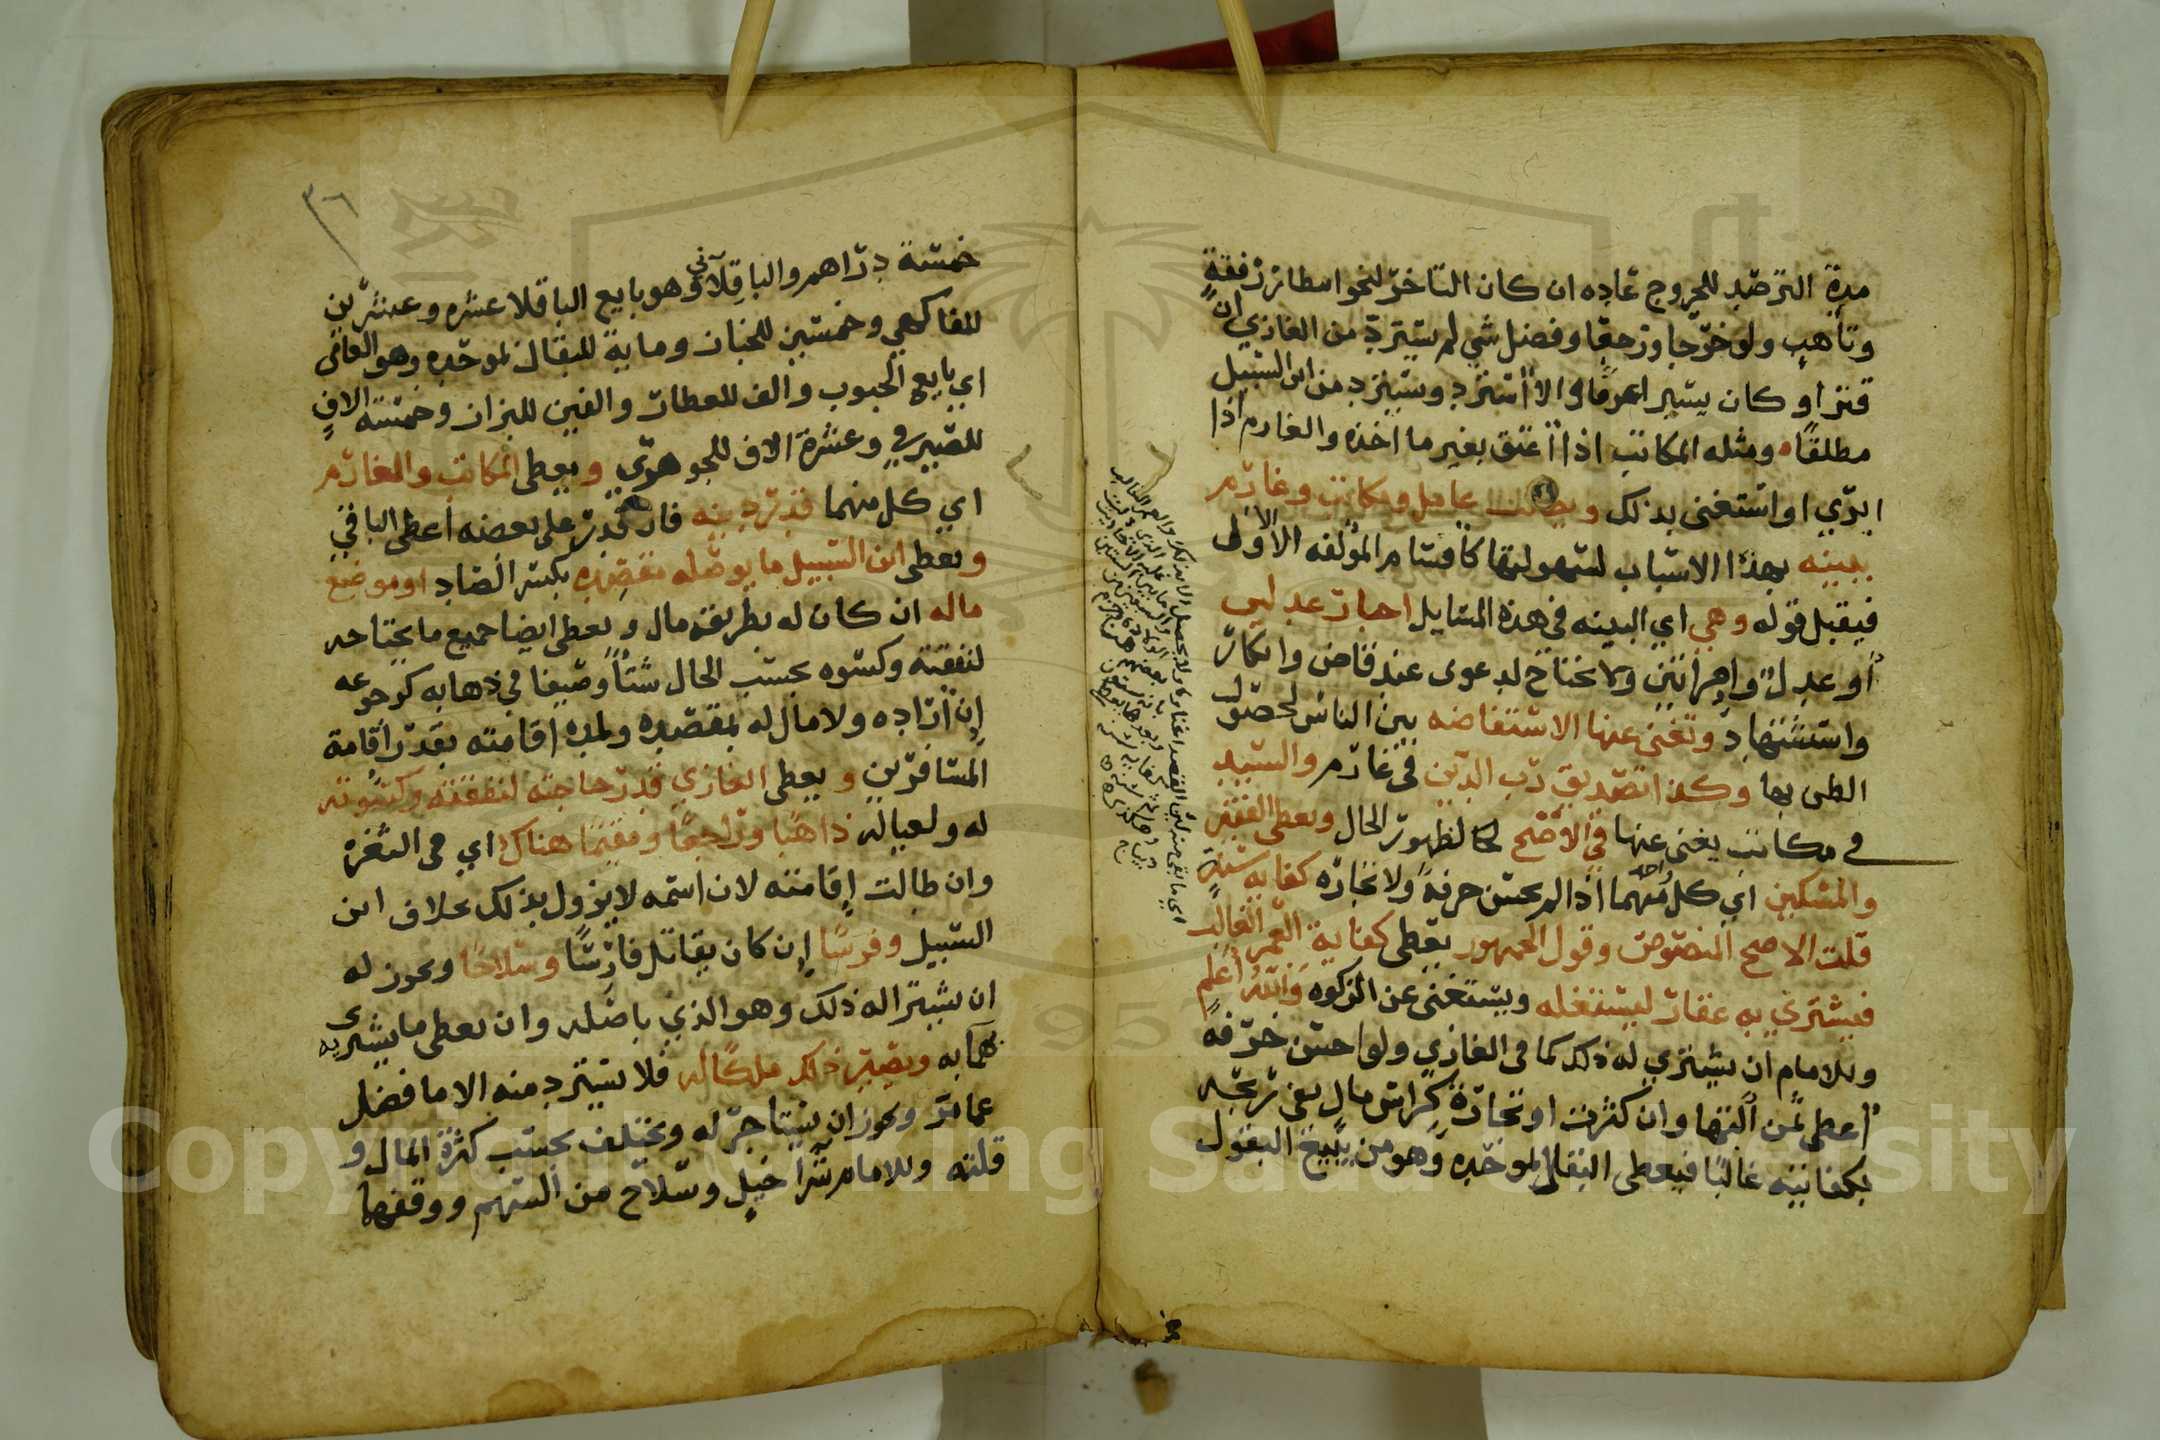 مدة الترصد للخروج عاده ان كان التاخر لنحو انتظار رفقة
وتأهب ولو خرجا ورجعا وفضل شي لم يسترد من الغازي ان
قتر او كان يسير اعرفا والا استرد ويسترد من ابن السبيل
مطلقا ومثله المكاتب اذا اعتق بغير ما اخذه والغارم اذا
ابري او استغنى بذلك ويطالب عامل ومكاتب وغارم
ببينه بهذا الاسباب لسهولتها كاقسام المؤلفه الاول
فيقبل قوله وهي اي البينه في هذه المسايل اخبار عدلين
او عدل وامراتين ولا تحتاج لدعوى عند قاض وانكار
واستشهاد وتغني عنها الاستفاضه بين الناس لحصول
الظن بها وكذا تصديق رب الدين في غارم والسيد
في مكاتب يغني عنها في الاصح لظهور الحال ويعطى الفقير
والمسكين اي كل واحد منهما اذا لم يحسن حرفة ولا تجاره كفايه سنة
قلت الاصح المنصوص وقول الجمهور يعطى كفاية العمر الغالب
فيشتري به عقار ليستغله ويستغنى عن الزكوه والله اعلم
وللامام ان يشتري له ذلك كما في الغازي ولو احسن حرفة
اعطي ثمن التها وان كثرت او تجارة كراس مال يفي ربحه
بكفايته غالبا فيعطى البقال بموحده وهو من يبيع البقول
اي ما بقي منه لان القصد اغناوه ولا يحصل الا بذلك
خمسة دراهم والباقلاني وهو بايع الباقلا عشره وعشرين
للفاكهي وخمسين للخباز وماية للبقال بموحده وهو الفامي
اي بايع الحبوب والف للعطار والفين للبزاز وخمسة الاف
للصيرفي وعشرة الاف للجوهري ويعطى المكاتب والغارم
اي كل منهما قدر دينه فان قدر على بعضه اعطي الباقي
ويعطى ابن السبيل ما يوصله مقصده بكسر الصاد او موضع
ماله ان كان له بطريقه مال ويعطى ايضا جميع ما يحتاجه
لنفقته وكسوه بحسب الحال شتأ وصيفا في ذهابه كرجوعه
ان اراده ولا مال له بمقصده ولمده اقامته بقدر اقامة
المسافرين ويعطى الغازي قدر حاجته لنفقته وكسوته
له ولعياله ذاهبا وراجعا ومقيما هناك اي في الثغر
وان طالت اقامته لان اسمه لا يزول بذلك بخلاف ابن
السبيل وفرسا ان كان يقاتل فارسا وسلاحا ويجوز له
ان يشترا له ذلك وهو الذي باصله وان يعطى ما يشتريه
بهما به ويصير ذلك ملكا له فلا يسترد منه الا ما فضل
عما مر ويجوز ان يستاجر له ويختلف بحسب كثرة المال و
قلته وللامام شرا خيل وسلاح من السهم ووقفها
٣٦
Copyright © King Saud University